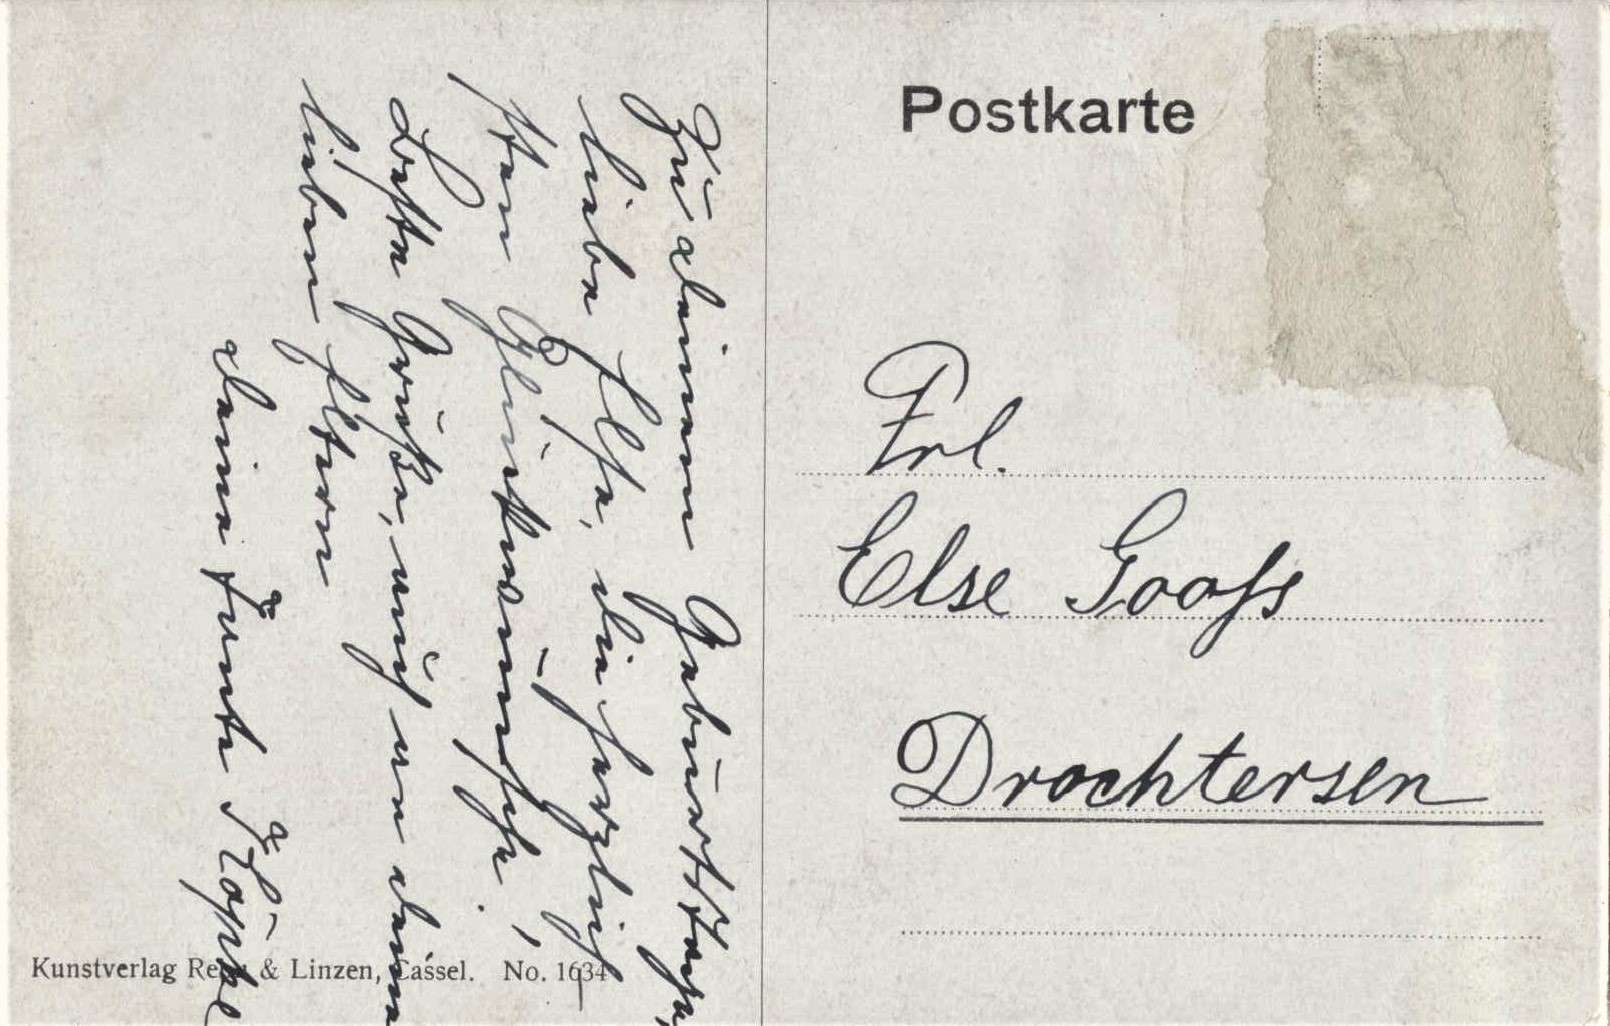 Zu deinem Geburtstage,
liebe Else, die herzlich
sten Glückwünsche!
Beste Grüße, auch an deine
lieben Eltern
deine Tante Köpke
Kunstverlag Rehn & Linzen, Cassel. No. 1634
Postkarte
Frl.
Else Gooſs
Drochtersen